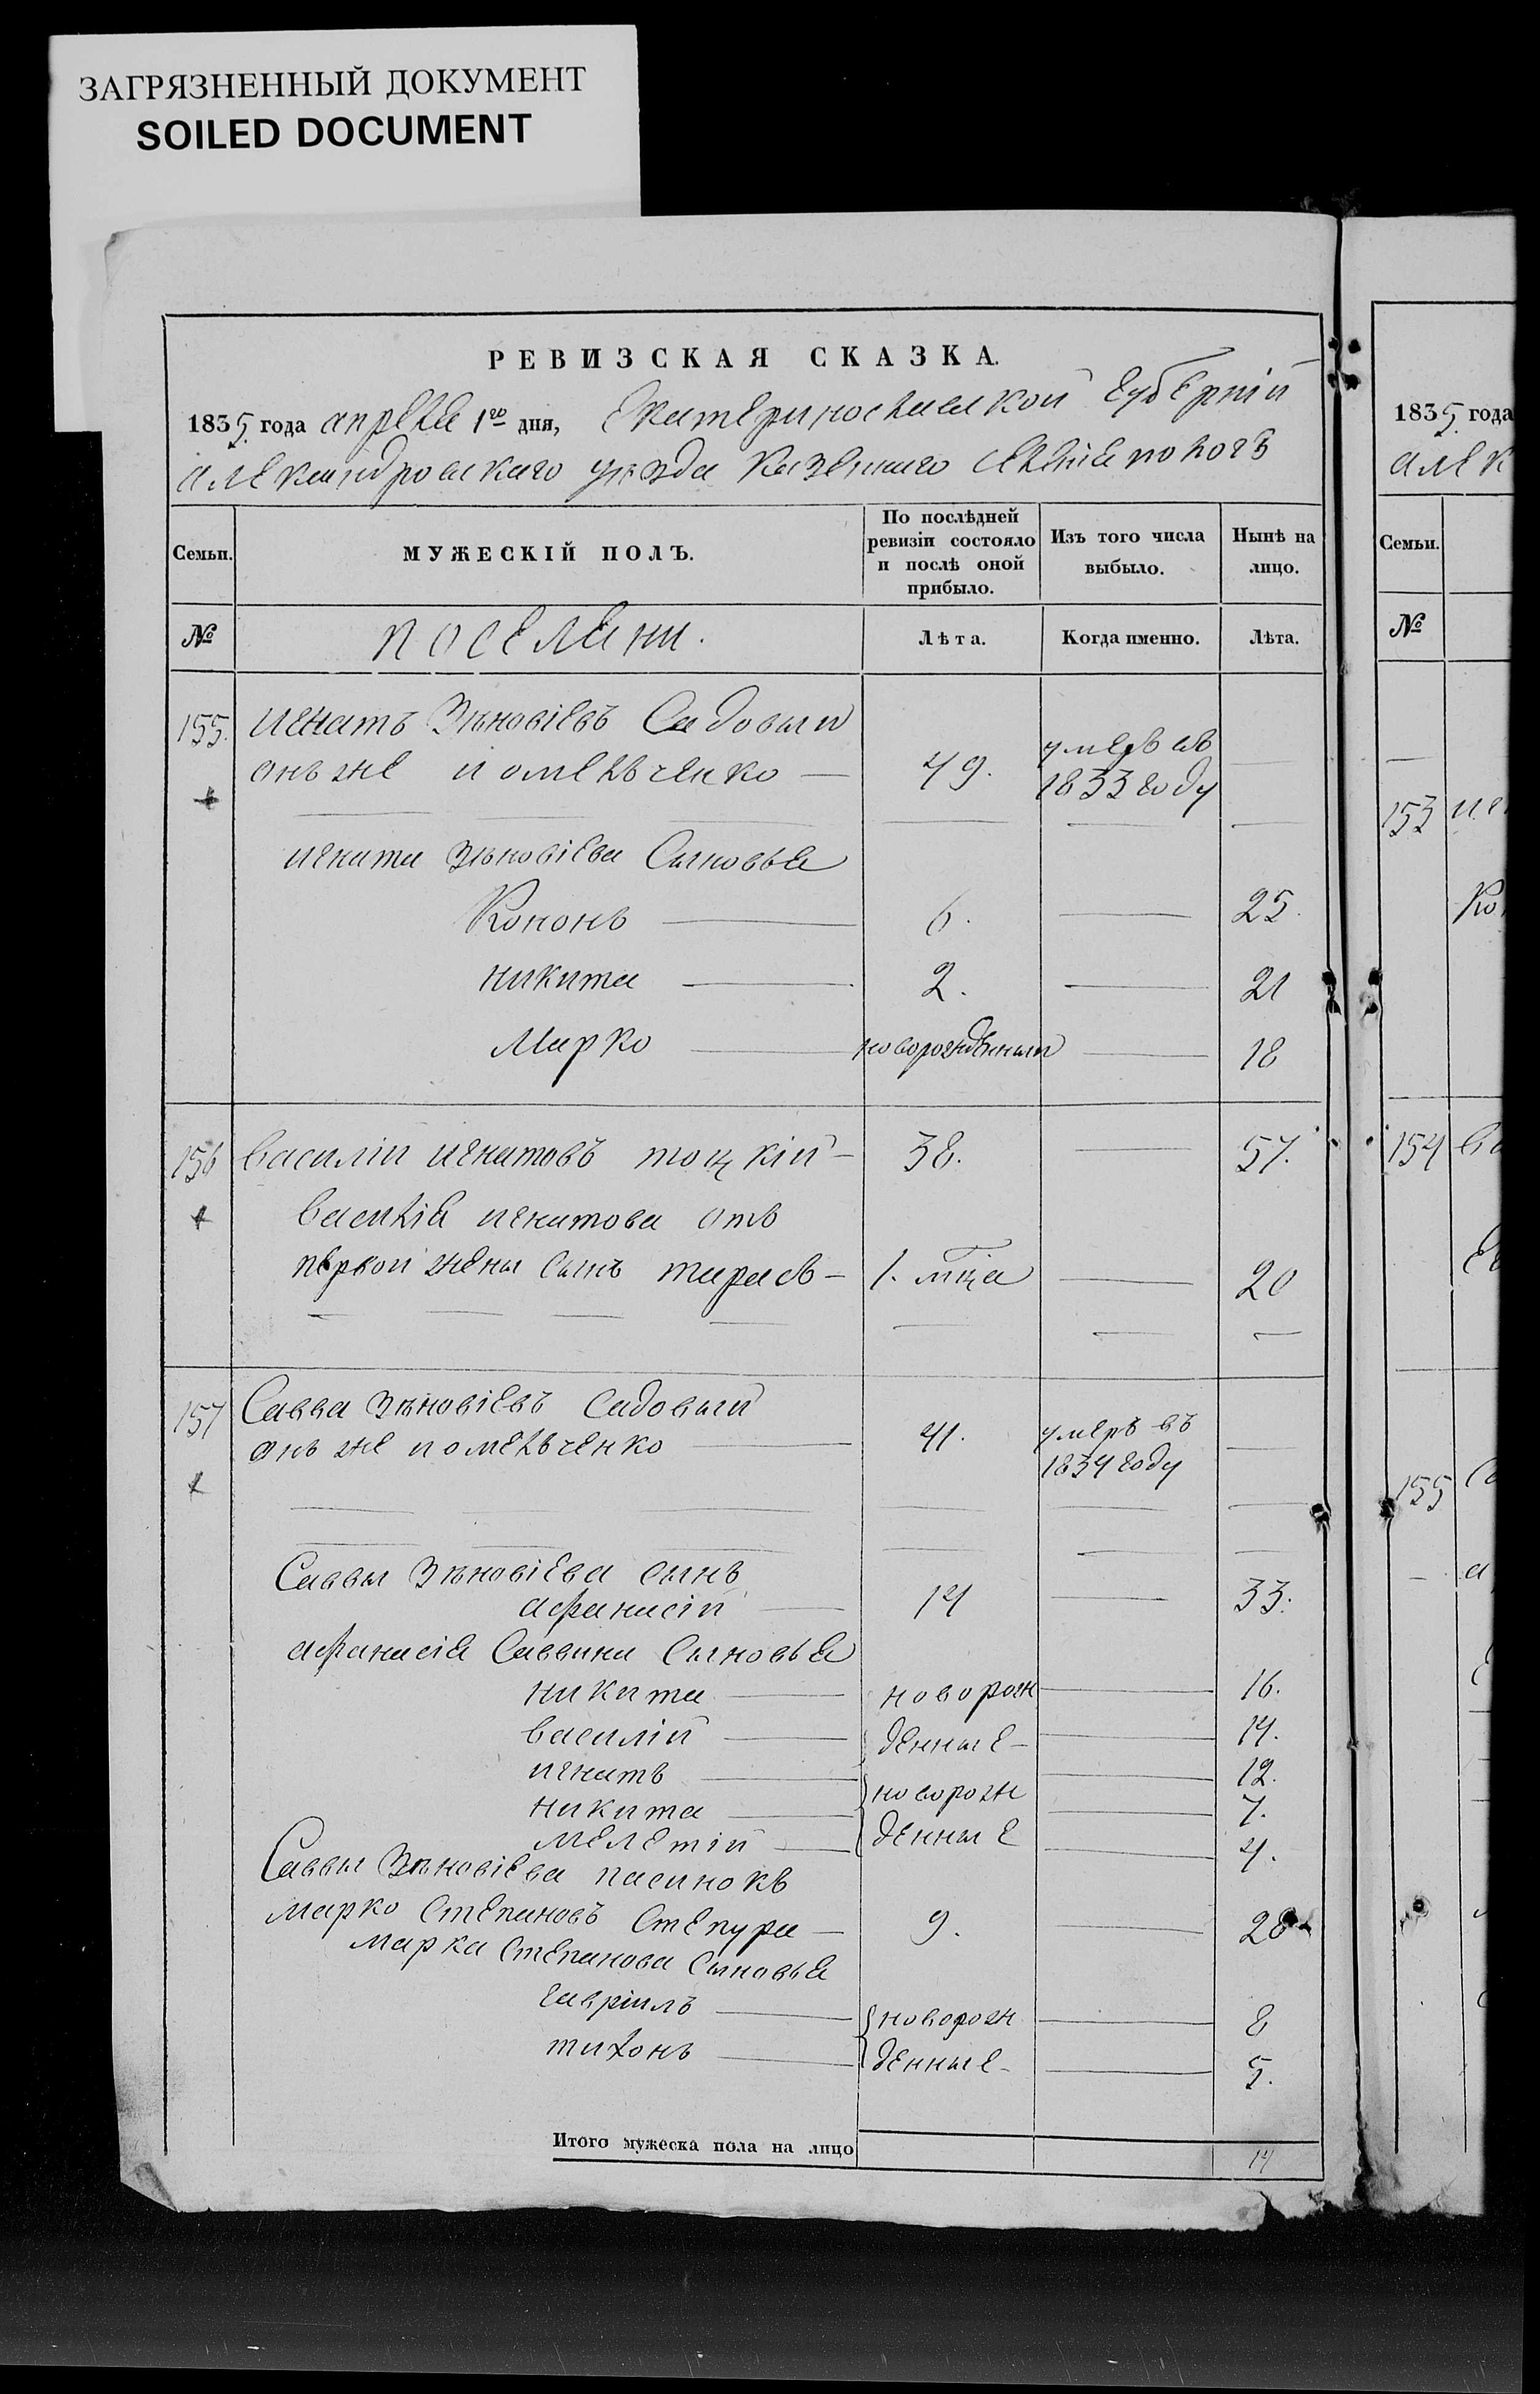 ЗАГРЯЗНЕННЫЙ ДОКУМЕНТ
SOILED DOCUMENT
РЕВИЗСКАЯ СКАЗКА.
1835 года апреля 1го дня, Екатеринославской губерніи
александровскаго уѣзда казеннаго селенія пологъ
Семьи.
МУЖЕСКІЙ ПОЛЪ.
По послѣдней ревизіи состояло и послѣ оной прибыло.
Изъ того числа выбыло.
Нынѣ на лицо.
№
поселяни.
Лѣта.
Когда именно.
Лѣта.
155. игнатъ Зѣновіевъ Садовыи
онъ же иомельченко — 49. умеръ въ 1833 году —
игната зѣновіева Сыновья
Кононъ — 6. — 25.
никита — 2. — 21
Марко — новорожденныи — 18
156 василіи игнатовъ тоцкіи — 38. — 57.
василія игнатова отъ
первои жены сынъ тарасъ — 1. мца — 20
157 Савва Зѣновіевъ Садовыи
онъ же иомельченко — 41. умеръ въ 1834 году —
Саввы Зѣновіева сынъ
афанасіи — 14 — 33.
афанасія Саввина Сыновья
никита — новорож — 16.
василіи — денные — 14.
игнатъ — 12.
никита — новорож — 7.
мелетіи — денные — 4.
Саввы Зѣновіева пасинокъ
марко Степановъ Степура — 9. — 28
марка Степанова Сыновья
гавріилъ — новорож — 8
тихонъ — денные — 5.
Итого мужеска пола на лицо 14
1835 года
алек
Семьи.
№
153
Ко
154
155